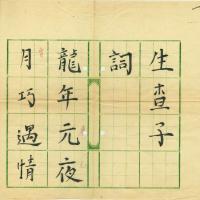 生查子
詞
龍年元夜
月巧遇情